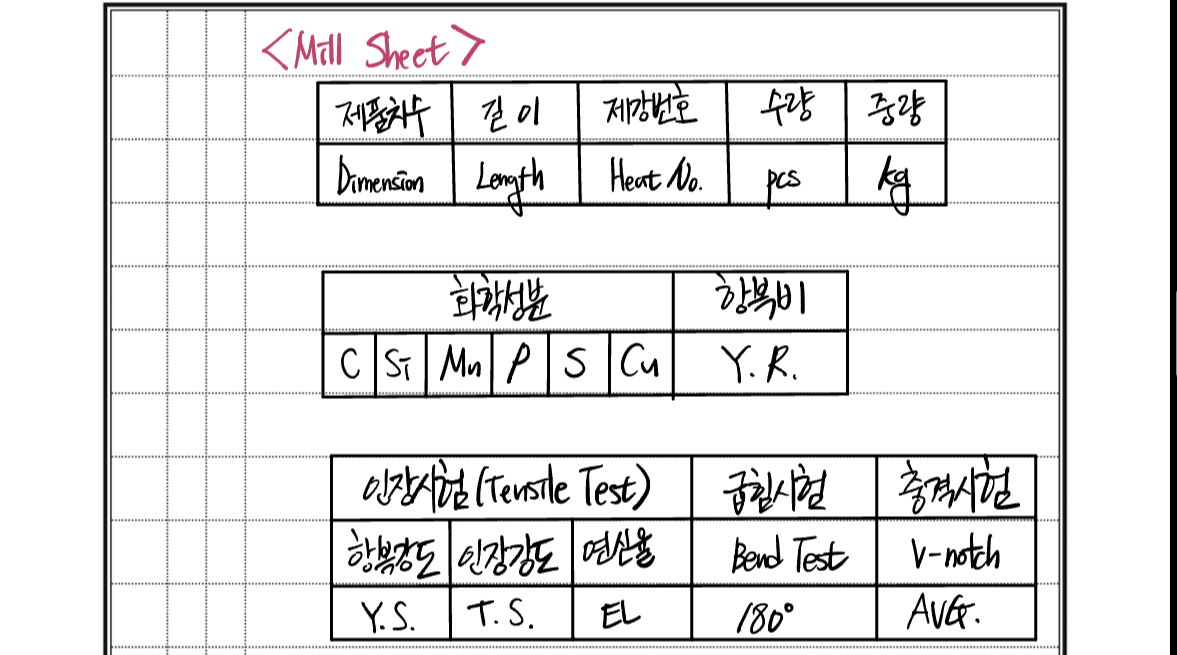 <Mill Sheet>
제품치수 길이 제강번호 수량 중량
Dimension Length Heat No. pcs kg
화학성분 항복비
C Si Mn P S Cu Y.R.
인장시험(Tensile Test) 굽힘시험 충격시험
항복강도 인장강도 연신율 Bend Test V-notch
Y.S. T.S. EL 180° AVG.